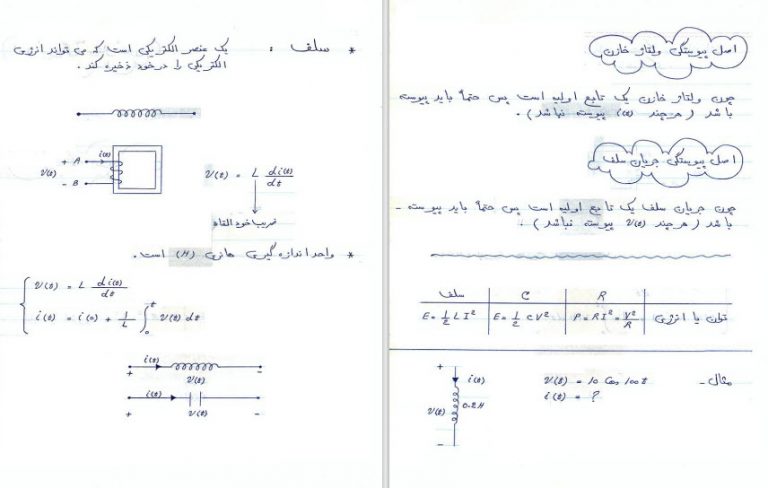 * سلف : یک عنصر الکتریکی است که می تواند انرژی
الکتریکی را در خود ذخیره کند .
+ A
i(t)
V(t)
- B
V(t) = L di(t)/dt
ضریب خود القاء
* واحد اندازه گیری هانری (H) است .
V(t) = L di(t)/dt
i(t) = i(0) + 1/L ∫₀ᵗ V(t) dt
i(t)
+ -
V(t)
i(t)
+ -
V(t)
اصل پیوستگی ولتاژ خازن
چون ولتاژ خازن یک تابع اولیه است پس حتماً باید پیوسته
باشد ( هرچند i(t) پیوسته نباشد ) .
اصل پیوستگی جریان سلف
چون جریان سلف یک تابع اولیه است پس حتماً باید پیوسته -
باشد ( هرچند V(t) پیوسته نباشد ) .
سلف C R
E = 1/2 L I² E = 1/2 C V² P = R I² = V²/R توان یا انرژی
مثال -
V(t) = 10 Cos 100t
i(t) = ?
+
i(t)
V(t) 0.2H
-